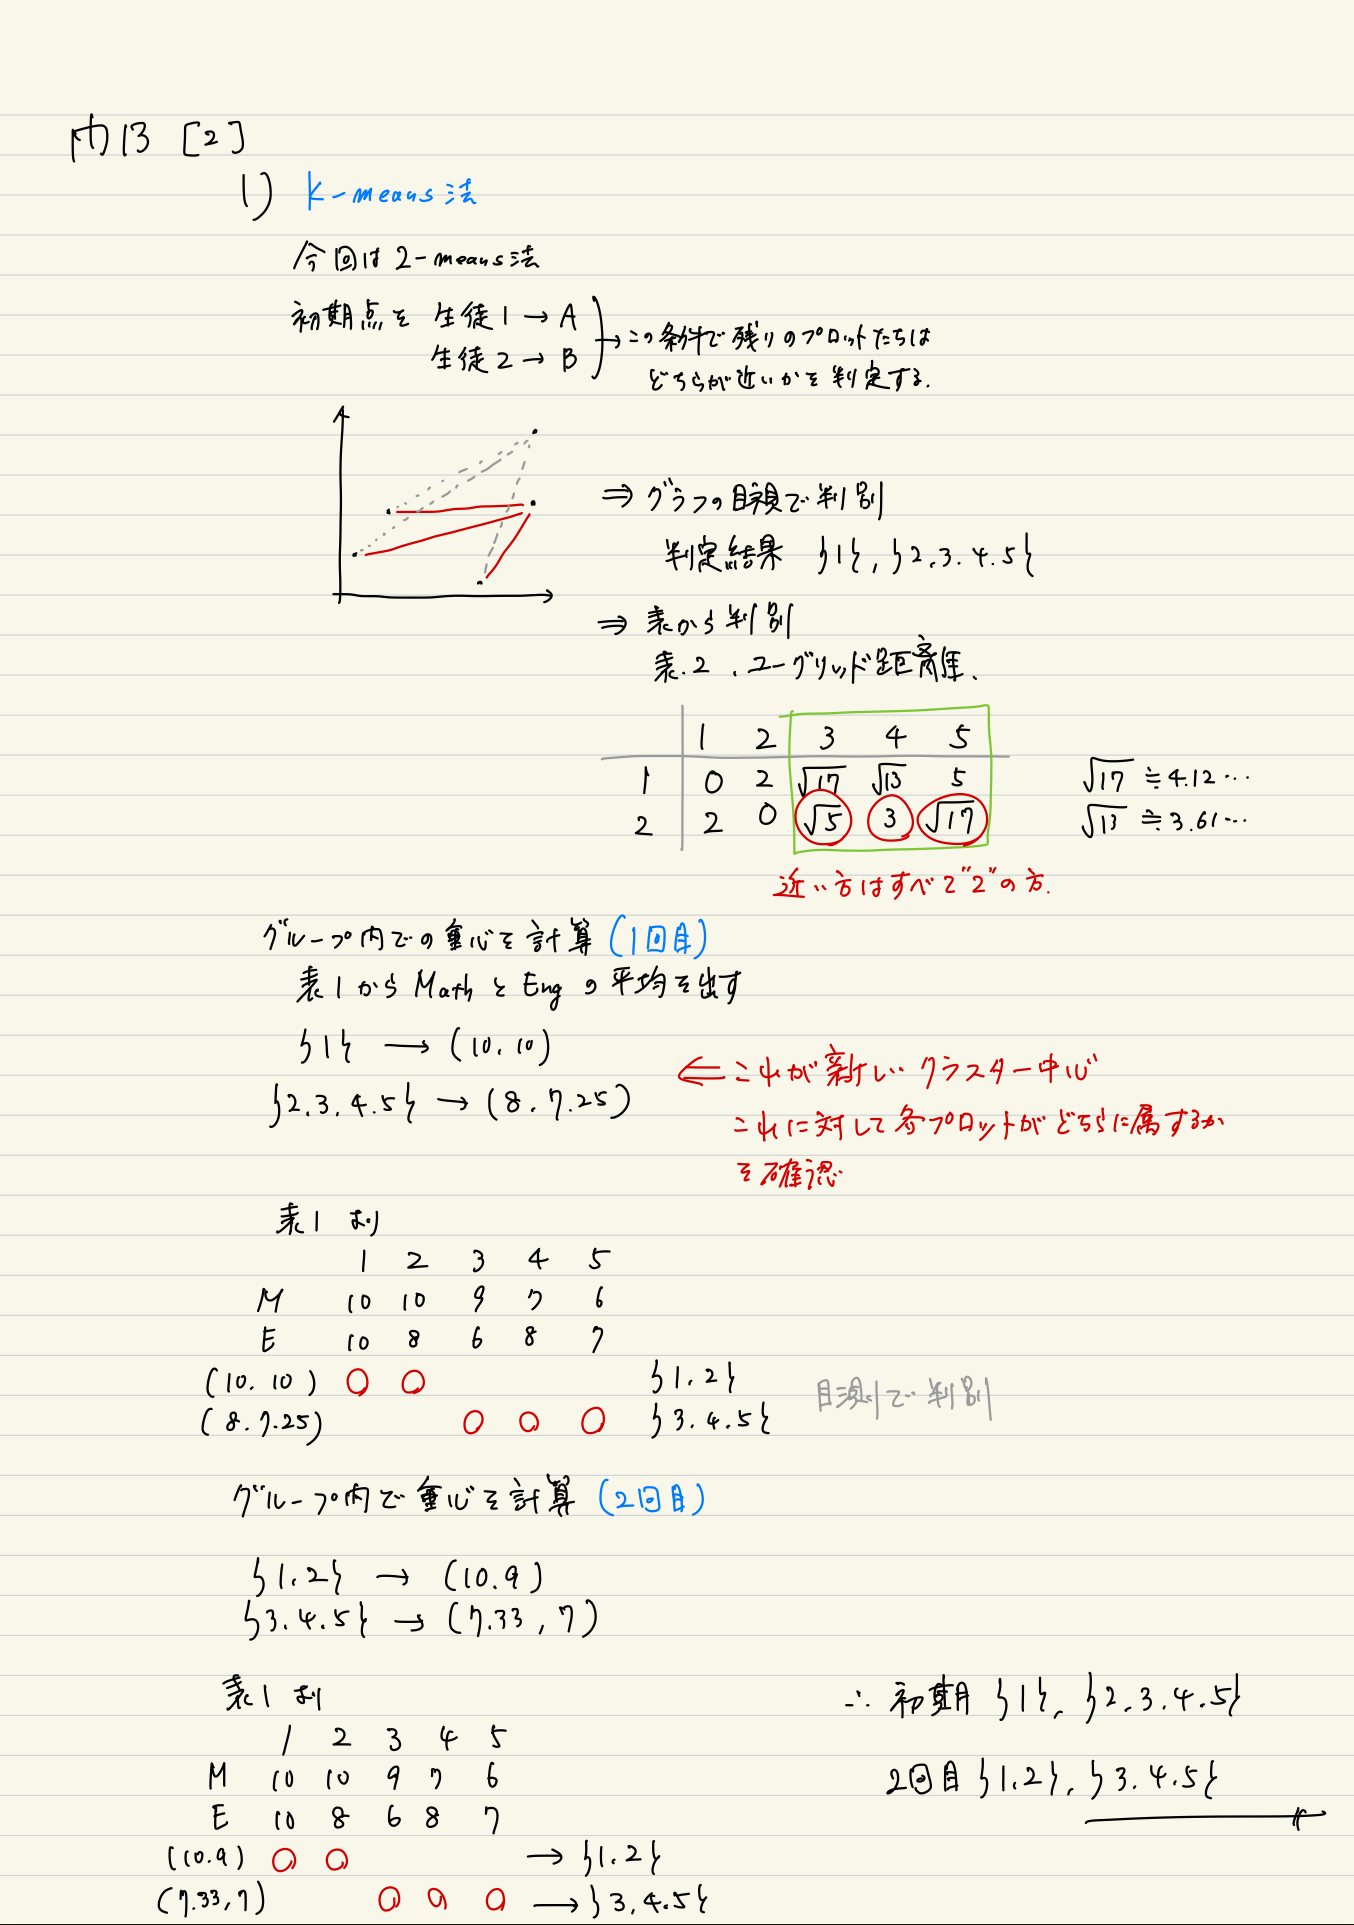 問13 [2]
1) k-means法
今回は2-means法
初期点を 生徒1→A
生徒2→B
→この条件で残りのプロットたちは
どちらが近いかを判定する.
⇒グラフの目視で判別
判定結果 {1}, {2.3.4.5}
⇒表から判別
表.2 . ユークリッド距離.
1 2 3 4 5
1 0 2 √17 √13 5
2 2 0 √5 3 √17
√17 ≒ 4.12…
√13 ≒ 3.61…
近い方はすべて"2"の方.
グループ内での重心を計算 (1回目)
表1からMathとEngの平均を出す
{1} → (10.10)
{2.3.4.5} → (8.7.25)
⇐ これが新しいクラスター中心
これに対して各プロットがどちらに属するか
を確認
表1より
1 2 3 4 5
M 10 10 9 7 6
E 10 8 6 8 7
(10.10) ○ ○ {1.2}
(8.7.25) ○ ○ ○ {3.4.5}
目測で判別
グループ内で重心を計算 (2回目)
{1.2} → (10.9)
{3.4.5} → (7.33, 7)
表1より
1 2 3 4 5
M 10 10 9 7 6
E 10 8 6 8 7
(10.9) ○ ○ → {1.2}
(7.33, 7) ○ ○ ○ → {3.4.5}
∴ 初期 {1}, {2.3.4.5}
2回目 {1.2}, {3.4.5}